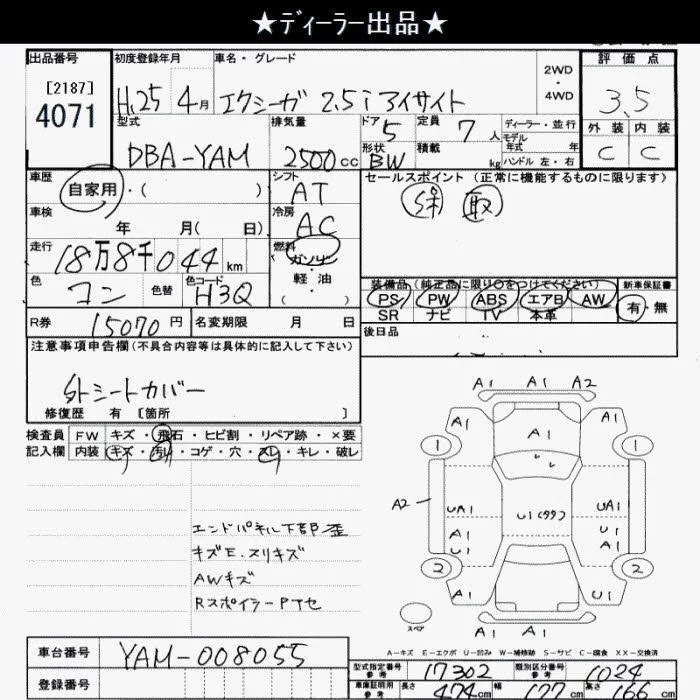 ★ディーラー出品★
出品番号 初度登録年月 車名・グレード 2WD ・ 4WD 評価点
[2187]
4071
H.25 4月 エクシーガ 2.5i アイサイト 3.5
型式 排気量 ドア 5 定員 7人 ディーラー・並行 外装 内装
DBA-YAM 2500cc 形状 BW 積載 kg モデル年式 年 ハンドル 左・右 C C
車歴 シフト セールスポイント (正常に機能するものに限ります)
自家用・( ) AT 保 取
車検 年 月( 日) 冷房 AC
走行 18万8千044km 燃料 ガソリン ・ 軽油 ・ ( )
色 コン 色替 色コード H3Q
装備品(純正品に限り○をつけてください) 新車保証書
PS PW ABS エアB AW 有・無
SR ナビ TV 本革
R券 15070円 名変期限 月 日 後日品
注意事項申告欄(不具合内容等は具体的に記入して下さい)
外シートカバー
修復歴 有 [箇所 ]
検査員 FW キズ・飛石・ヒビ割・リペア跡・×要
記入欄 内装 キズ・汚れ・コゲ・穴・スレ・キレ・破レ
エンドパネル下部歪
キズE.スリキズ
AWキズ
RスポイラーPTセ
A1 A1 A2
A1 A1 A1
1 1
A2 UA1 U1(99) UA1
A1 U1 A1
2 2
A1 U1
スペア A1 A1
A-キズ E-エクボ U-凹み W-補修跡 S-サビ C-腐食 XX-交換済
車台番号 YAM-008055
型式指定番号 参考 17302 類別区分番号 参考 1024
登録番号 車庫証明用 参考 長さ 474cm 幅 177cm 高さ 166cm